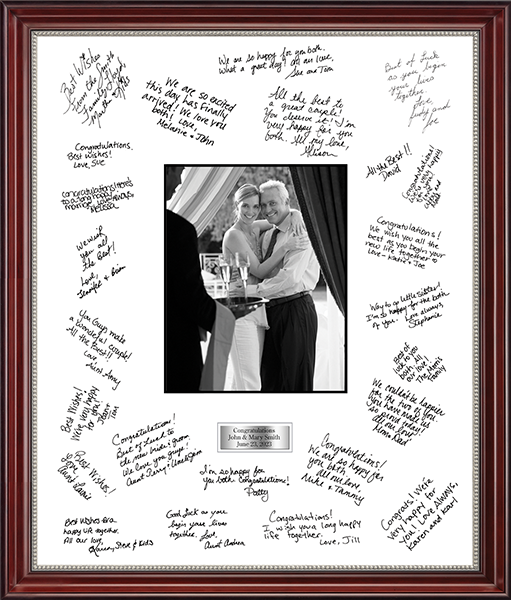 Best Wishes
from the Smith
Family - Lloyd
Martha + Kids
We are so happy for you both.
What a great day! All our love,
Sue and Tom
Best of Luck
as you begin
your lives
together.
Love,
Judy and
Joe
We are so excited
this day has finally
arrived! We love you
both! Love,
Melanie + John
All the best to
a great couple!
You deserve it! I'm
very happy for you
both. All my love,
Allison
Congratulations.
Best wishes!
Love, Sue
All the Best!!
David
Congratulations!
very happy
love
and
congratulations! Here's
to a long happy
marriage. Love always
Melissa
We wish
you all
the Best!
Love,
Jennifer + Brian
Congratulations!
We wish you all the
best as you begin your
new life together
Love - Katie + Joe
Way to go little sister!
I'm so happy for the both
of you. Love always
Stephanie
You Guys make
a wonderful couple!
All the Best!!
Love
Aunt Mary
Best of
luck to you
both. All
our love!
The Morris
Family
Best Wishes!
We're very happy
for you!
Jean +
Tom
We couldn't be happier
for the two of you
You have made us
so proud
All our love
Mom & Dad
Congratulations
John & Mary Smith
June 23, 2023
Congratulations!
Best of Luck to
the new bride & groom
We love you guys!
Aunt Cerry + Uncle Jim
Congratulations!
We are so happy for
you both.
All our love,
Mike + Tammy
Best Wishes!
Love
Laurie
I'm so happy for
you both. Congratulations!
Patty
Congrats! We're
very happy for
you! Love Always,
Karen and Karl
Best wishes for a
happy life together.
All our love,
Steve & Kids
Good luck as you
begin your lives
together. Love,
Aunt Andrea
Congratulations!
I wish you a long happy
life together.
Love, Jill